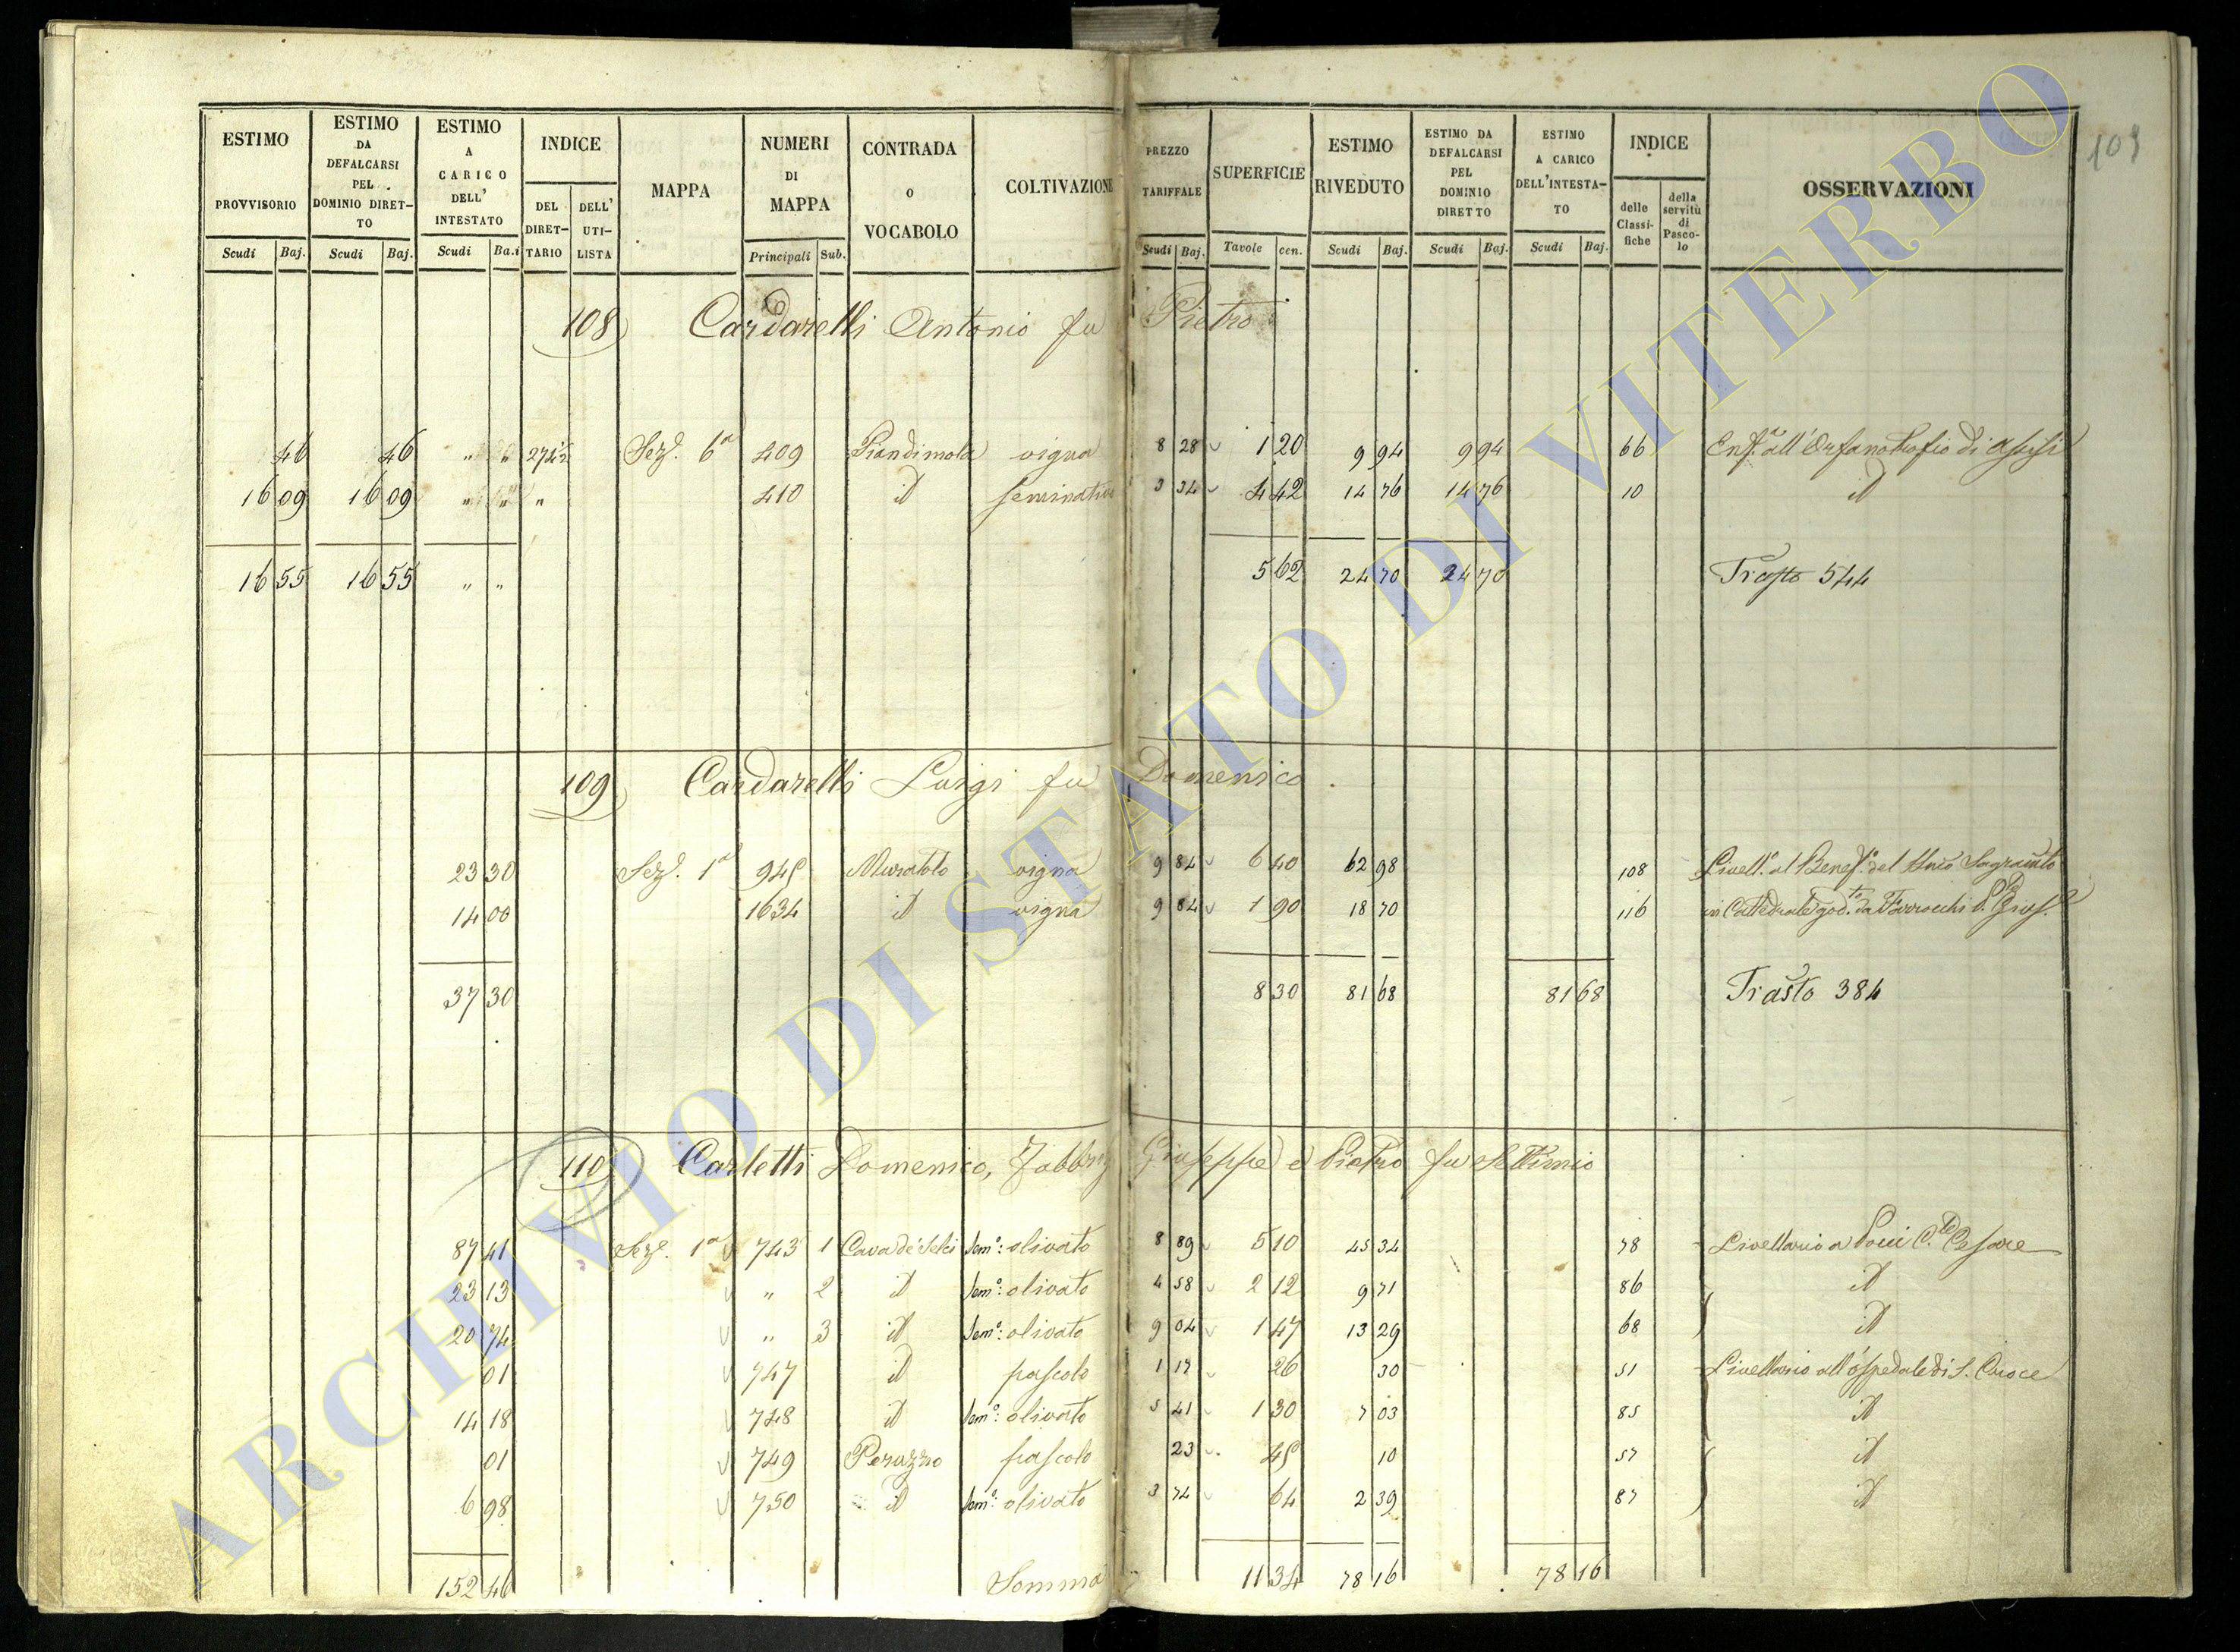 109
ESTIMO PROVVISORIO | ESTIMO DA DEFALCARSI PEL DOMINIO DIRET-TO | ESTIMO A CARICO DELL' INTESTATO | INDICE | MAPPA | NUMERI DI MAPPA | CONTRADA O VOCABOLO | COLTIVAZIONE | PREZZO TARIFFALE | SUPERFICIE | ESTIMO RIVEDUTO | ESTIMO DA DEFALCARSI PEL DOMINIO DIRETTO | ESTIMO A CARICO DELL'INTESTA-TO | INDICE | OSSERVAZIONI
DEL DIRET-TARIO | DELL' UTI-LISTA | delle Classi-fiche | della servitù di Pasco-lo
Scudi | Baj. | Scudi | Baj. | Scudi | Ba.i | Principali | Sub. | Scudi | Baj. | Tavole | cen. | Scudi | Baj. | Scudi | Baj. | Scudi | Baj.
108) Cardarelli Antonio fu Pietro
46 | 46 | " " | Sez.e 6a | 409 | Piandimola | vigna | 8 28 | 1 20 | 9 94 | 9 94 | 66 | Enf.a all'Orfanotrofio di
16 09 | 16 09 | " " | " | 410 | id | seminativo | 3 34 | 4 42 | 14 76 | 14 76 | 10 | id
16 55 | 16 55 | " " | 5 62 | 24 70 | 24 70 | Trasto 544
109) Cardarelli Luigi fu Domenico
23 30 | Sez.e 1a | 945 | Muratolo | vigna | 9 84 | 6 40 | 62 98 | 108 | Livell.o al Benef.o del Sagramto
14 00 | 1634 | id | vigna | 9 84 | 1 90 | 18 70 | 116 | in Cattedrale god.to da D. Gius.e
37 30 | 8 30 | 81 68 | 81 68 | Trasto 384
110) Carletti Domenico, Giuseppe e Pietro fu Settimio
87 41 | Sez.e 1a | 743 | 1 | Cava de' Selci | Sem.o: olivato | 8 89 | 5 10 | 45 34 | 78 | Livellario a C.te Cesare
23 13 | " | 2 | id | Sem.o: olivato | 4 58 | 2 12 | 9 71 | 86 | id
20 74 | " | 3 | id | Sem.o: olivato | 9 04 | 1 47 | 13 29 | 68 | id
01 | 747 | id | pascolo | 1 17 | 26 | 30 | 51 | Livellario all'ospedale di S. Croce
14 18 | 748 | id | Sem.o: olivato | 5 41 | 1 30 | 7 03 | 85 | id
01 | 749 | Peruzzo | pascolo | 23 | 45 | 10 | 57 | id
6 98 | 750 | id | Sem.o: olivato | 3 74 | 64 | 2 39 | 87 | id
152 46 | Somma | 11 34 | 78 16 | 78 16
ARCHIVIO DI STATO DI VITERBO